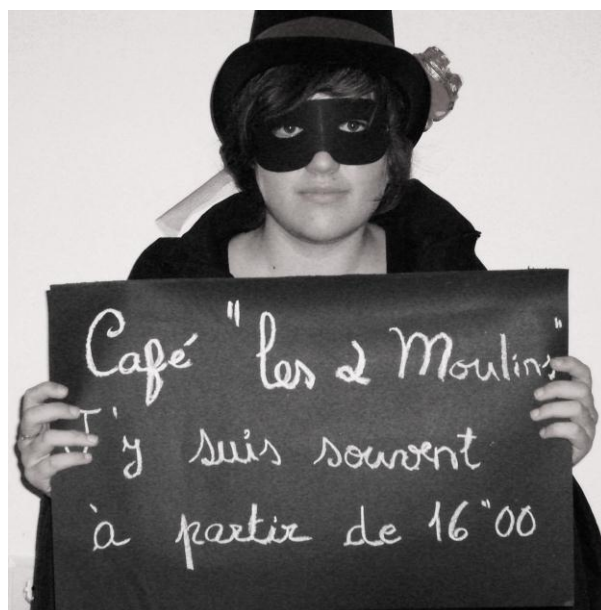 Café "les 2 Moulins"
J'y suis souvent
à partir de 16"00